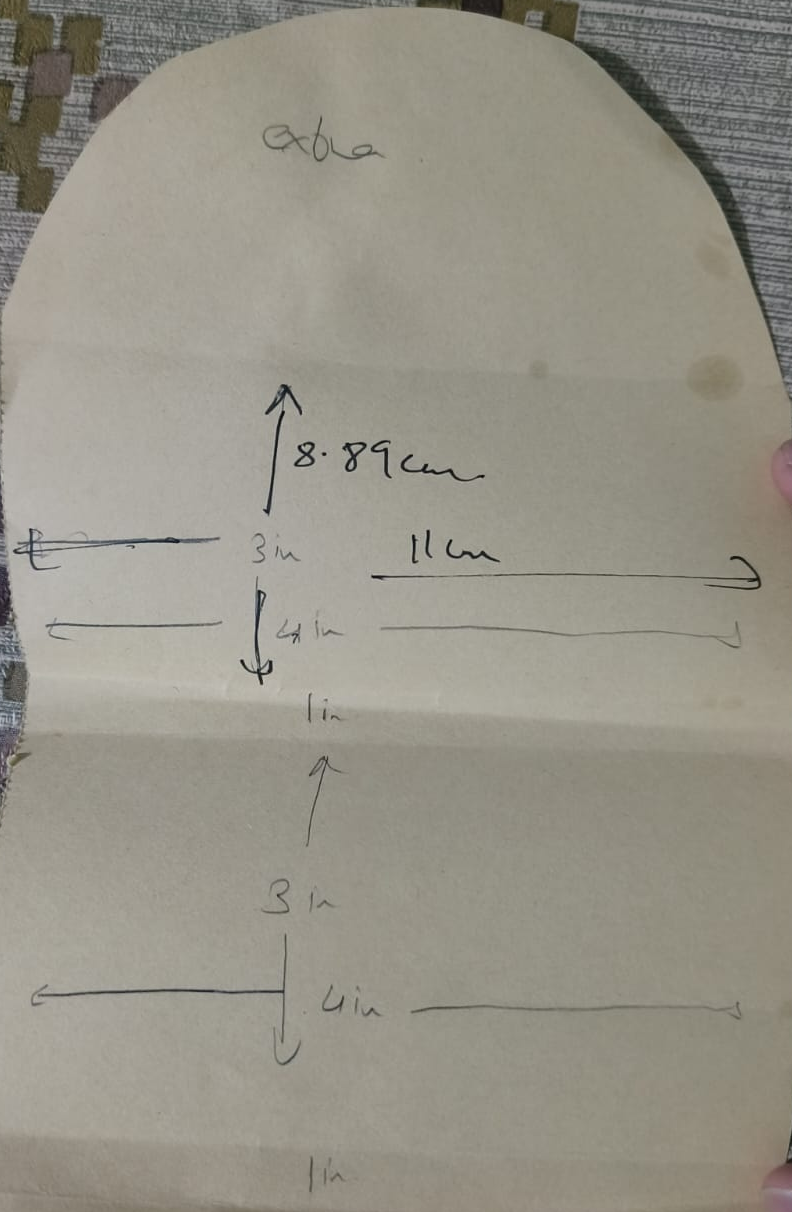 extra
8.89cm
3in
11cm
4in
1in
3in
4in
1in